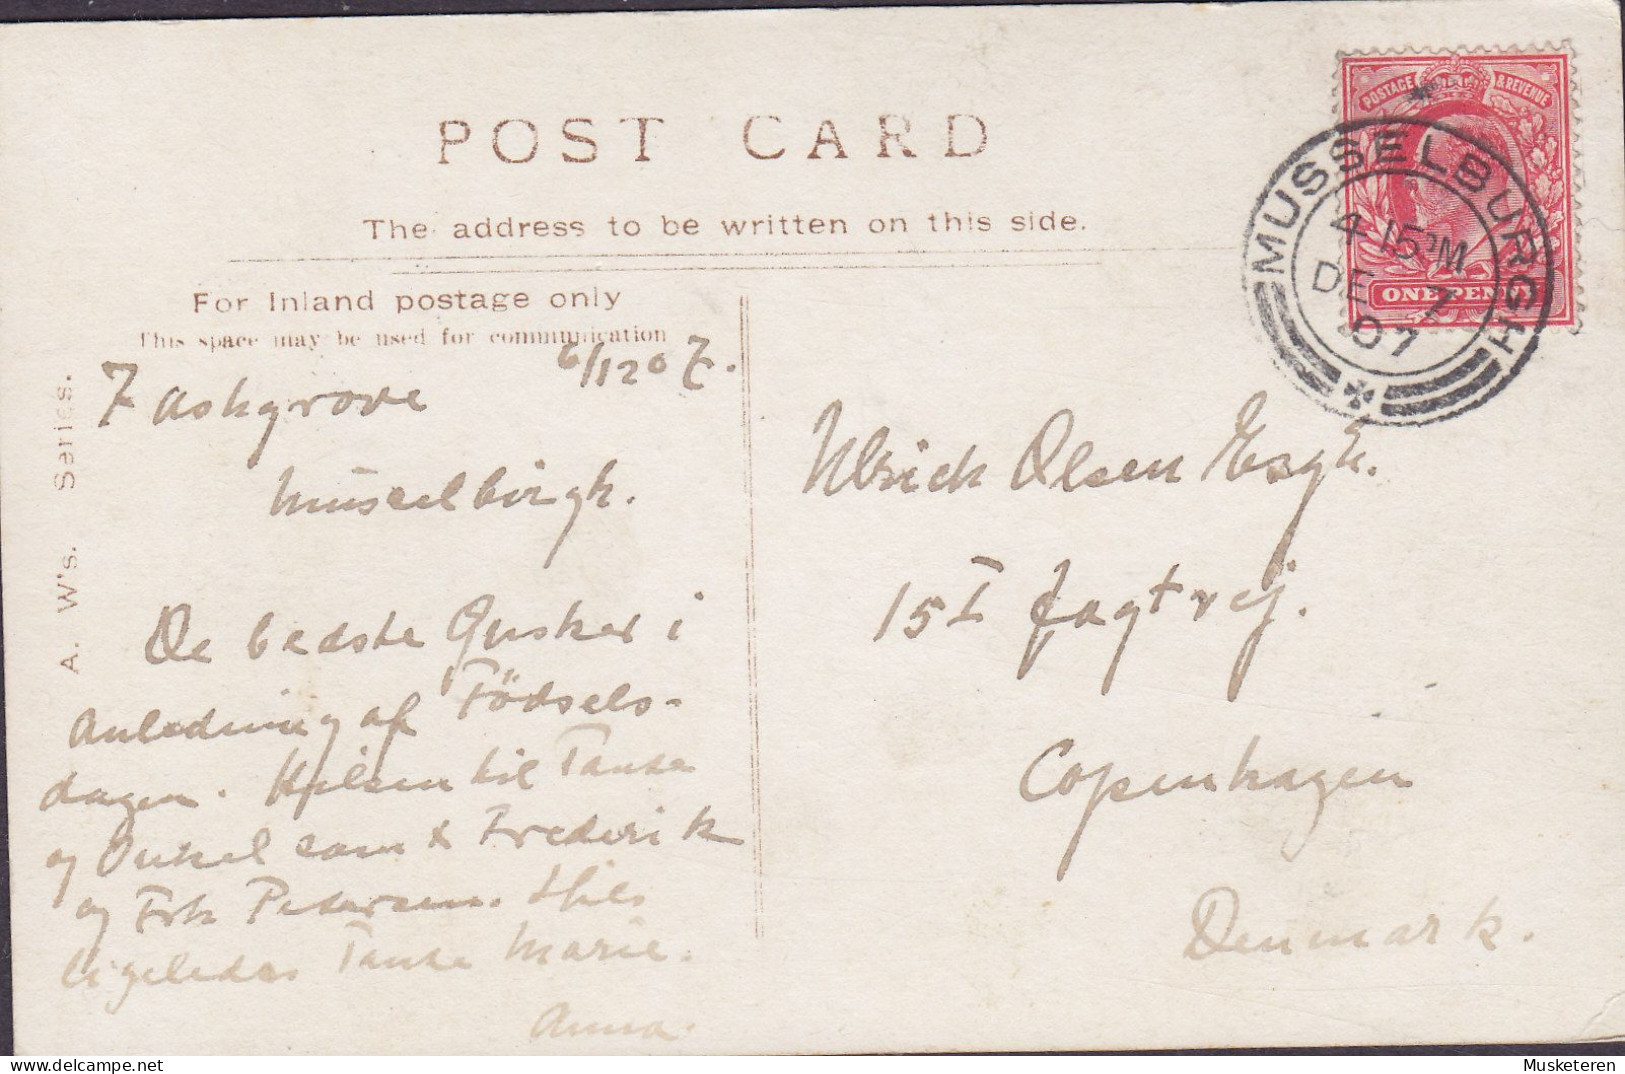 POST CARD
The address to be written on this side.
For Inland postage only
This space may be used for communication
A. W's. Series.
POSTAGE & REVENUE
ONE PENNY
MUSSELBURGH
4 15 PM
DE 7
07
6/12 07.
7 Ashgrove
Musselburgh.
De bedste Ønsker i
Anledning af Födsels-
dagen. Hilsen til Tante
og Onkel samt Frederik
og Frk Petersen. Hils
ligeledes Tante Marie.
Anna.
Ulrich Olsen Esqr.
15 I Jagtvej.
Copenhagen
Denmark.
Musketeren